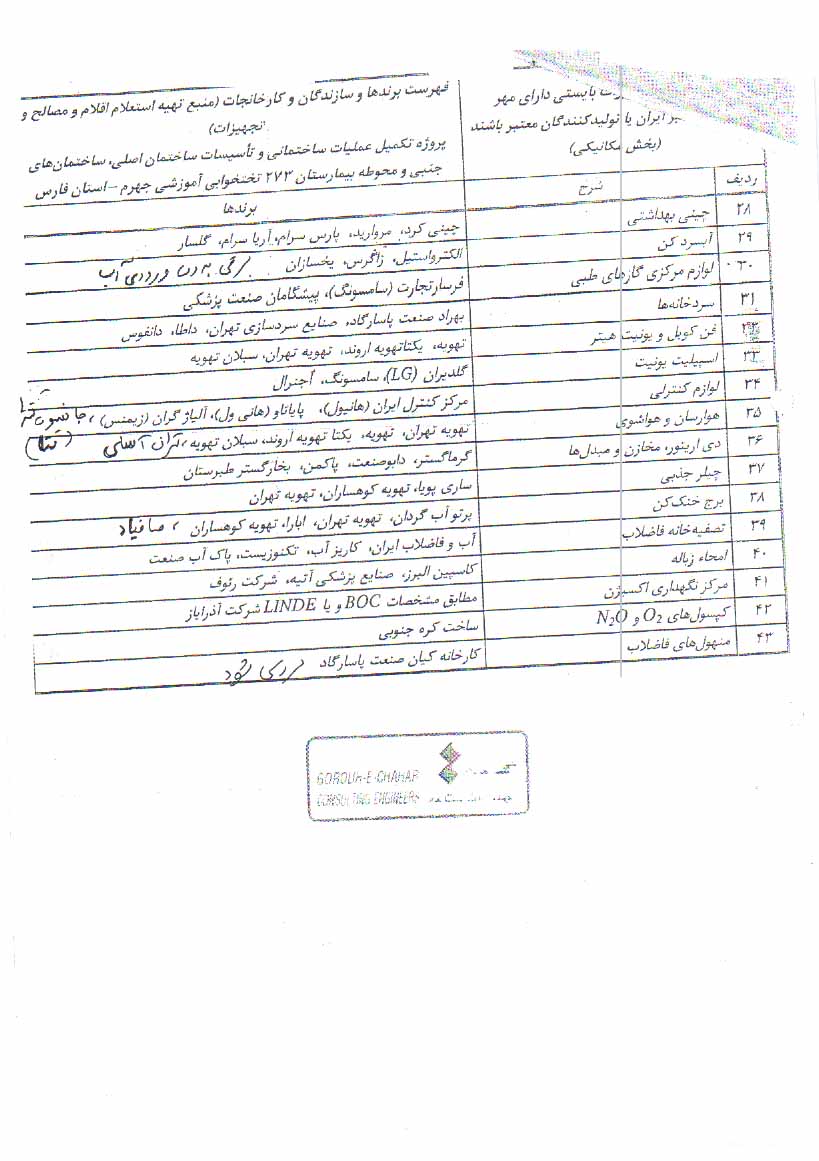 بایستی دارای مهر
ایران یا تولیدکنندگان معتبر باشند
(بخش مکانیکی)
فهرست برندها و سازندگان و کارخانجات (منبع تهیه استعلام اقلام و مصالح و
تجهیزات)
پروژه تکمیل عملیات ساختمانی و تأسیسات ساختمان اصلی، ساختمان‌های
جنبی و محوطه بیمارستان ۲۷۳ تختخوابی آموزشی جهرم - استان فارس
ردیف شرح برندها
۲۸ چینی بهداشتی چینی کرد، مروارید، پارس سرام، آریا سرام، گلسار
۲۹ آبسرد کن الکترواستیل، زاگرس، یخسازان
۳۰ لوازم مرکزی گازهای طبی فرسارتجارت (سامسونگ)، پیشگامان صنعت پزشکی
۳۱ سردخانه‌ها بهراد صنعت پاسارگاد، صنایع سردسازی تهران، داطا، دانفوس
۳۲ فن کویل و یونیت هیتر تهویه، یکتاتهویه اروند، تهویه تهران، سبلان تهویه
۳۳ اسپیلیت یونیت گلدیران (LG)، سامسونگ، اجنرال
۳۴ لوازم کنترلی مرکز کنترل ایران (هانیول)، پایاتاو (هانی ول)، آلیاژ گران (زیمنس)
۳۵ هوارسان و هواشوی تهویه تهران، تهویه، یکتا تهویه اروند، سبلان تهویه
۳۶ دی اریتور، مخازن و مبدل‌ها گرماگستر، دابوصنعت، پاکمن، بخارگستر طبرستان
۳۷ چیلر جذبی ساری پویا، تهویه کوهساران، تهویه تهران
۳۸ برج خنک‌کن پرتو آب گردان، تهویه تهران، ابارا، تهویه کوهساران ، صافیاد
۳۹ تصفیه‌خانه فاضلاب آب و فاضلاب ایران، کاریز آب، تکنوزیست، پاک آب صنعت
۴۰ امحاء زباله کاسپین البرز، صنایع پزشکی آتیه، شرکت رئوف
۴۱ مرکز نگهداری اکسیژن مطابق مشخصات BOC و یا LINDE شرکت آذراباز
۴۲ کپسول‌های O2 و N2O ساخت کره جنوبی
۴۳ منهول‌های فاضلاب کارخانه کیان صنعت پاسارگاد
GOROUH-E-CHAHAR
CONSULTING ENGINEERS